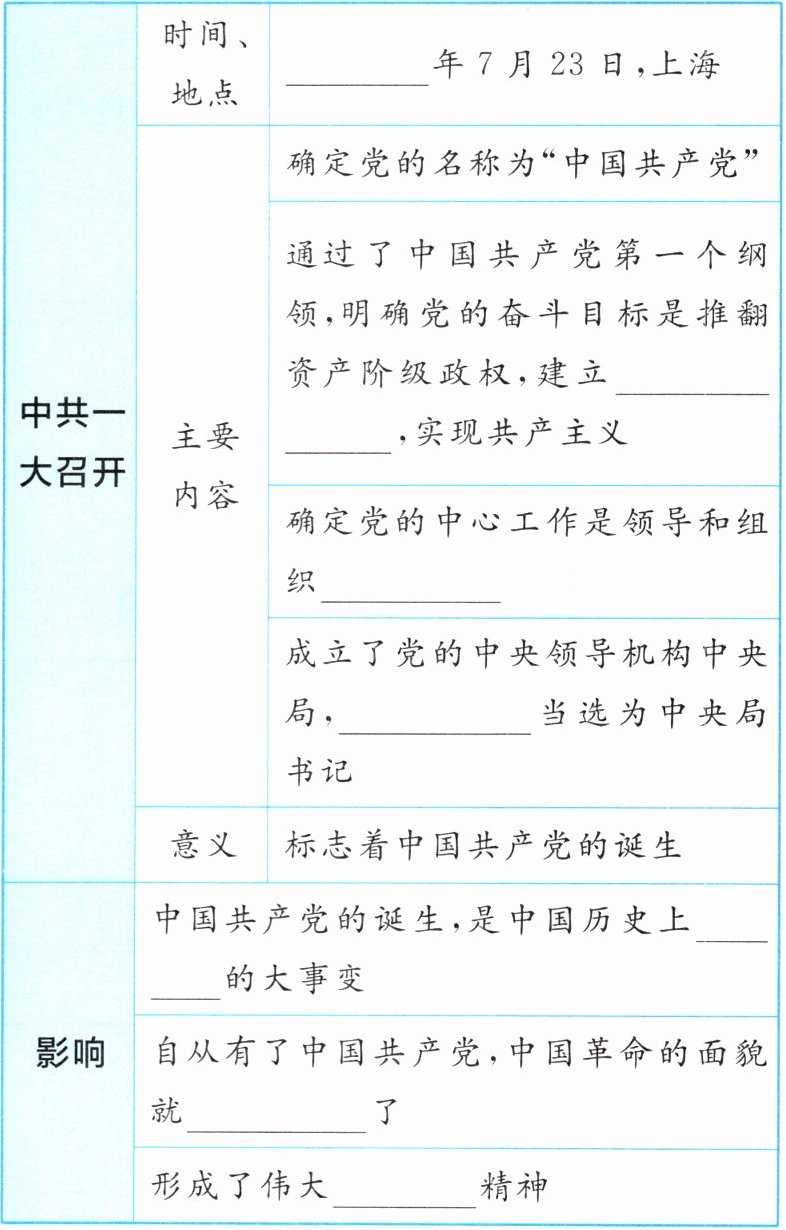 中共一
大召开
时间、
地点
________年7月23日,上海
主要
内容
确定党的名称为“中国共产党”
通过了中国共产党第一个纲
领,明确党的奋斗目标是推翻
资产阶级政权,建立________
______,实现共产主义
确定党的中心工作是领导和组
织__________
成立了党的中央领导机构中央
局,__________当选为中央局
书记
意义
标志着中国共产党的诞生
影响
中国共产党的诞生,是中国历史上____
____的大事变
自从有了中国共产党,中国革命的面貌
就__________了
形成了伟大________精神